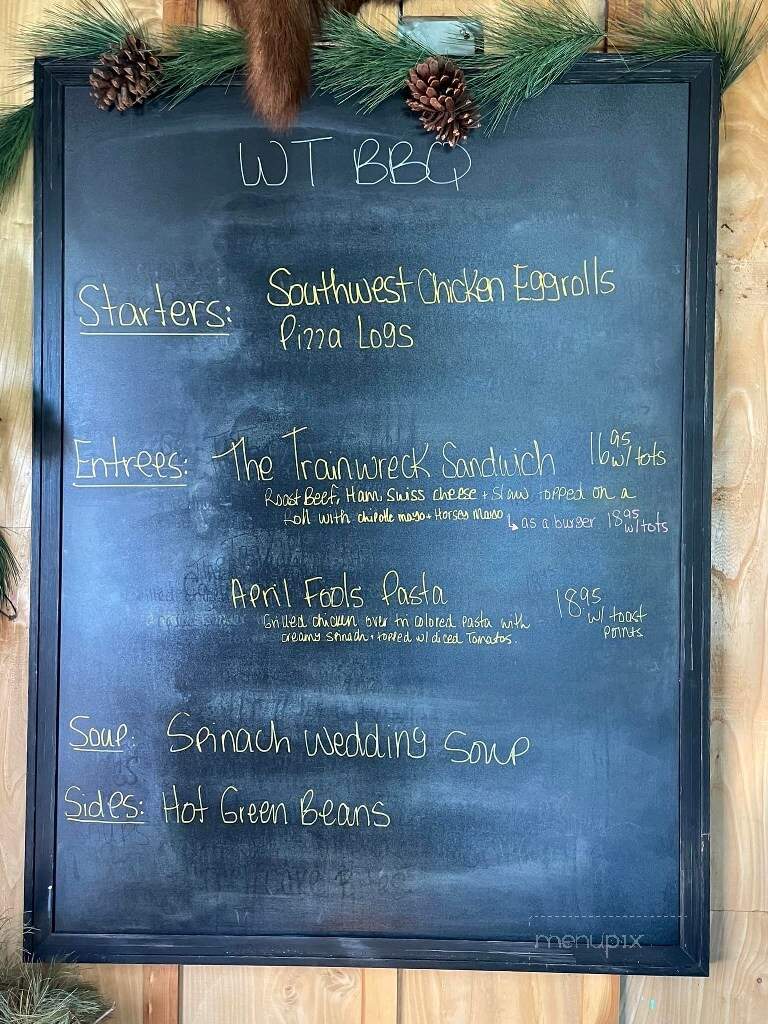 WT BBQ
Starters: Southwest Chicken Eggrolls
Pizza Logs
Entrees: The Trainwreck Sandwich 16 95 w/ tots
Roast Beef, Ham, Swiss cheese + slaw topped on a
roll with chipotle mayo + Horsey Mayo
↳ as a burger 18 95 w/ tots
April Fools Pasta 18 95 w/ toast
points
Grilled chicken over tri colored pasta with
creamy spinach + topped w/ diced Tomatos.
Soup: Spinach Wedding Soup
Sides: Hot Green Beans
menupix